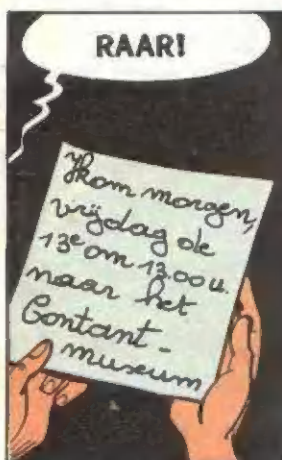 RAAR!
Kom morgen,
vrijdag de
13e om 13.00 u.
naar het
Contant-
museum